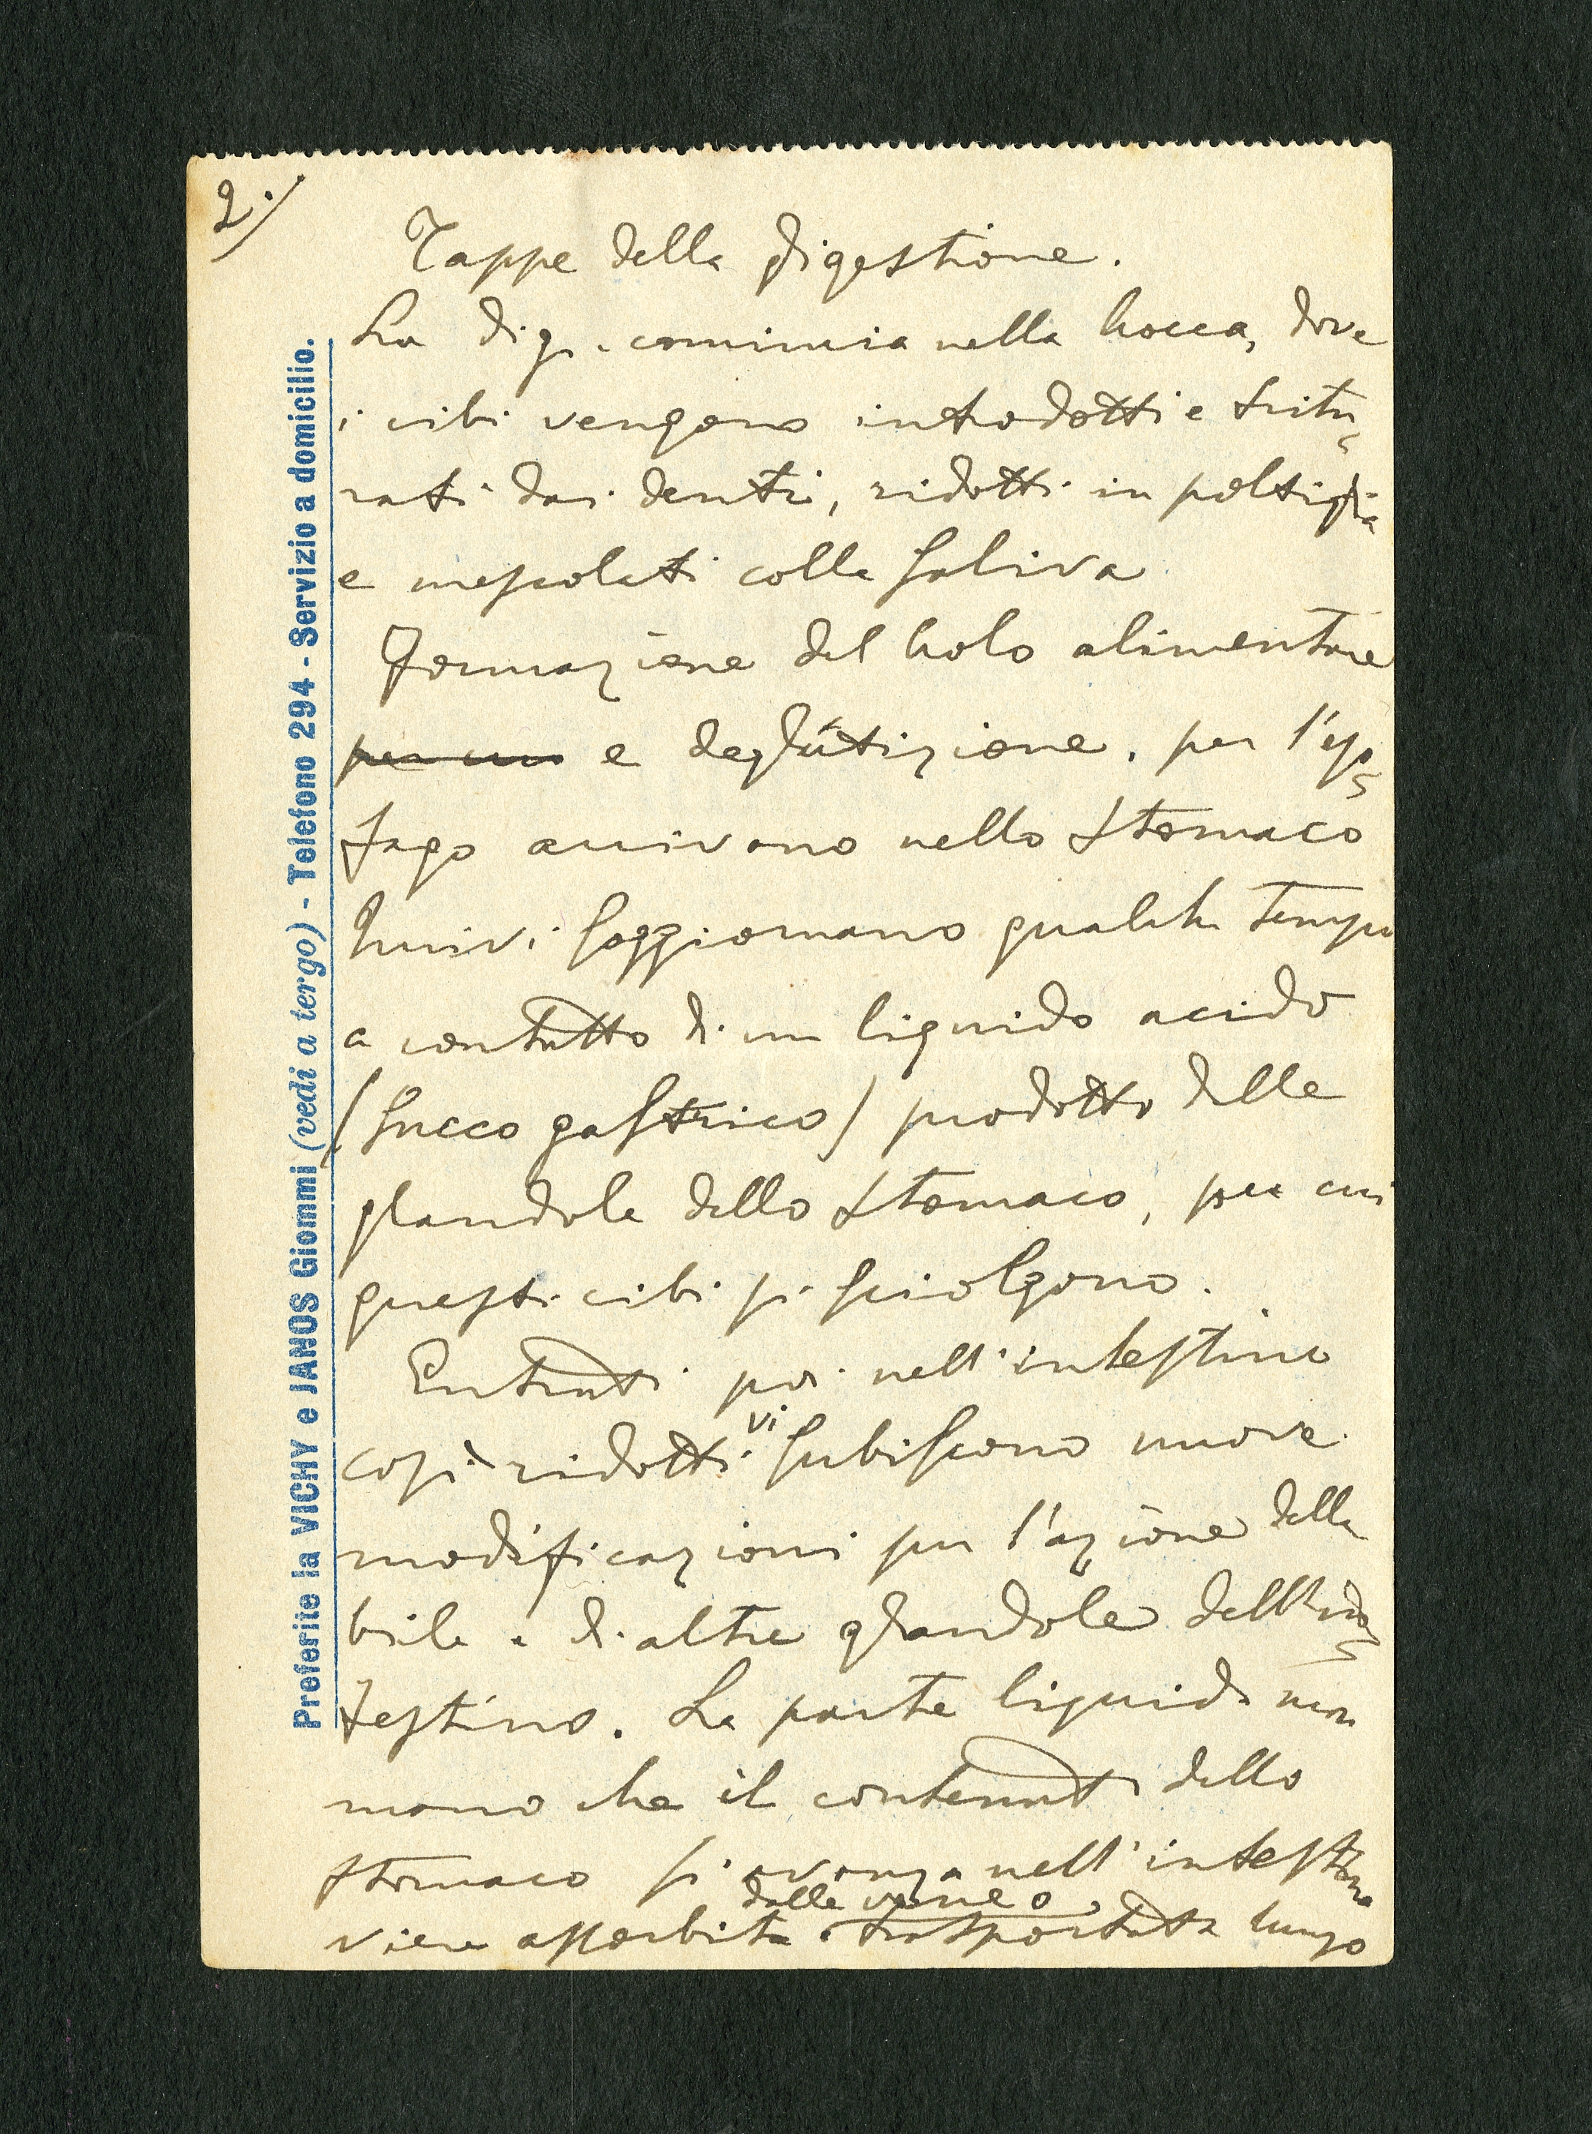 2./
Tappe della digestione.
La dig. comincia nella bocca, dove
i cibi vengono introdotti e tritu
rati dai denti, ridotti in poltiglia
e mescolati colla saliva
Formazione del bolo alimentare
per cui e deglutizione. per l'eso
fago arrivano nello stomaco
Quivi soggiornano qualche tempo
a contatto di un liquido acido
(succo gastrico) prodotto delle
glandole dello stomaco, per cui
questi cibi si sciolgono.
Entrati poi nell'intestino
così ridotti vi subiscono nuove
modificazioni per l'azione della
bile e di altre glandole dell'in
testino. La parte liquida man
mano che il contenuto dello
stomaco si avanza nell'intestino
viene assorbita dalle vene e trasportata lungo
Preferite la VICHY e JANOS Giommi (vedi a tergo) - Telefono 294 - Servizio a domicilio.